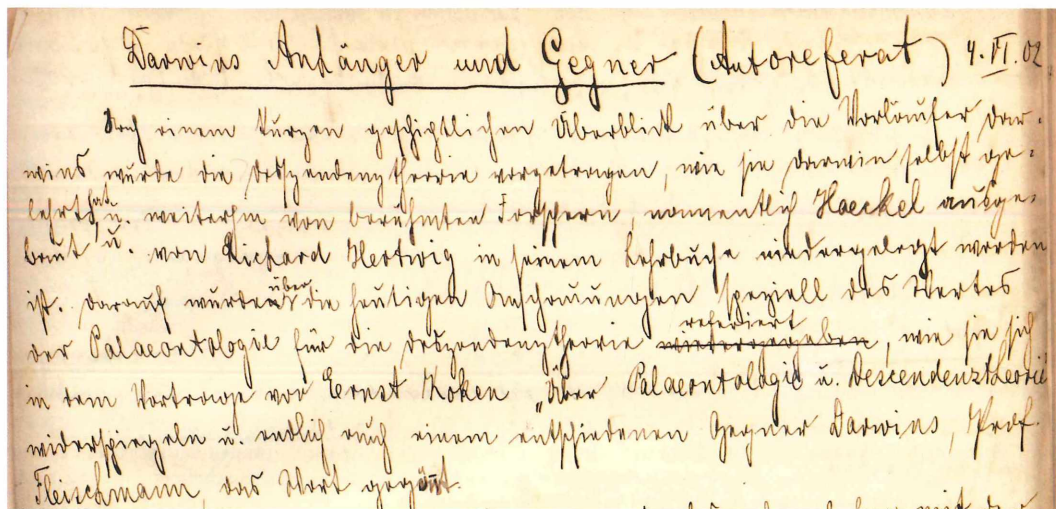 Darwins Anhänger und Gegner (Autoreferat) 4.VI.02
Nach einem kurzen geschichtlichen Überblick über die Vorläufer Dar-
wins wurde die Deszendenztheorie vorgetragen, wie sie Darwin selbst ge-
lehrt hat u. weiterhin von berühmten Forschern, namentlich Haeckel ausge-
baut u. von Richard Hertwig in seinem Lehrbuche niedergelegt worden
ist. Darauf wurde über die heutigen Anschauungen speziell des Wertes
der Palaeontologie für die Deszendenztheorie wiedergegeben referiert, wie sie sich
in dem Vortrage von Ernst Koken „Über Palaeontologie u. Descendenztheorie
widerspiegeln u. endlich auch einem entschiedenen Gegner Darwins, Prof.
Fleischmann, das Wort gegönnt.